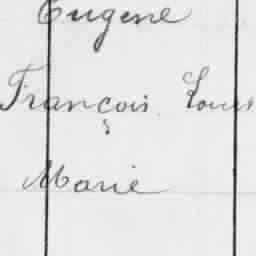 Eugene
François Louis
Marie